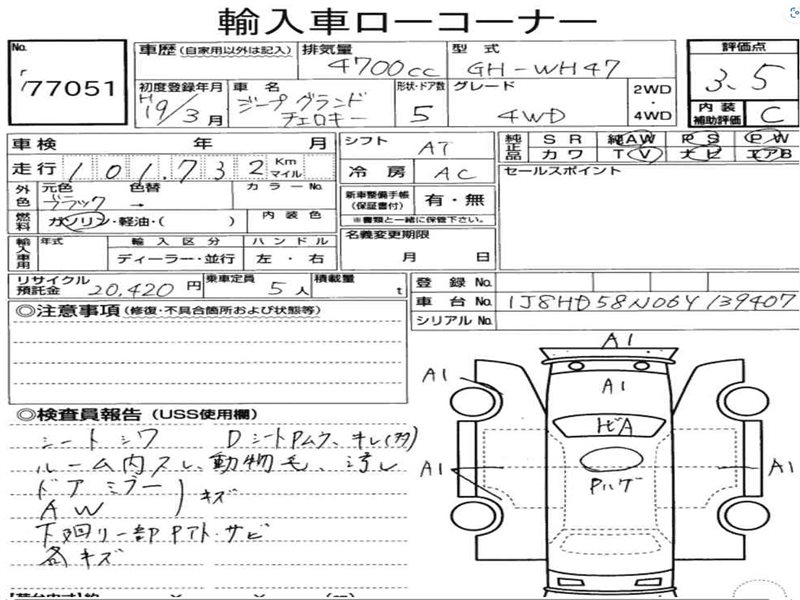 輸入車ローコーナー
No. 77051
車歴 (自家用以外は記入) 排気量 4700cc 型式 GH-WH47
初度登録年月 H19/3月 車名 ジープグランドチェロキー 形状・ドア数 5 グレード 4WD 2WD・4WD
評価点 3.5
内装補助評価 C
車検 年 月
走行 101,732 Km マイル
シフト AT
冷房 AC
純正品 SR 純AW PS PW
カワ TV ナビ エアB
外色 元色 ブラック 色替 → カラーNo.
燃料 ガソリン・軽油・( ) 内装色
新車整備手帳 (保証書付) 有・無
※書類と一緒に保管下さい。
セールスポイント
輸入車用 年式 輸入区分 ハンドル
ディーラー・並行 左・右
名義変更期限
月 日
リサイクル預託金 20,420円 乗車定員 5人 積載量 t
登録No.
車台No. 1J8HD58N06Y139407
シリアルNo.
◎注意事項 (修復・不具合箇所および状態等)
◎検査員報告 (USS使用欄)
シートシワ Dシート
ルーム内スレ、動物毛、汚レ
ドアミラー
AW
キズ
下廻リ一部Pアト・サビ
各キズ
A1
A1
A1
ヒビA
A1
A1
Pハゲ